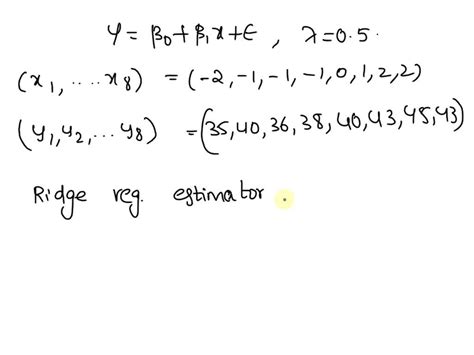 Y = β₀ + β₁x + ϵ , λ = 0.5 .
(x₁, .... x₈) = (-2, -1, -1, -1, 0, 1, 2, 2)
(y₁, y₂, ... y₈) = (35, 40, 36, 38, 40, 43, 45, 43)
Ridge reg. estimator .